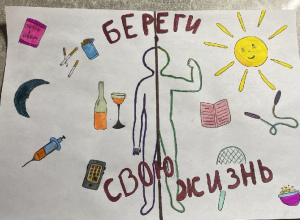 БЕРЕГИ
СВОЮ ЖИЗНЬ